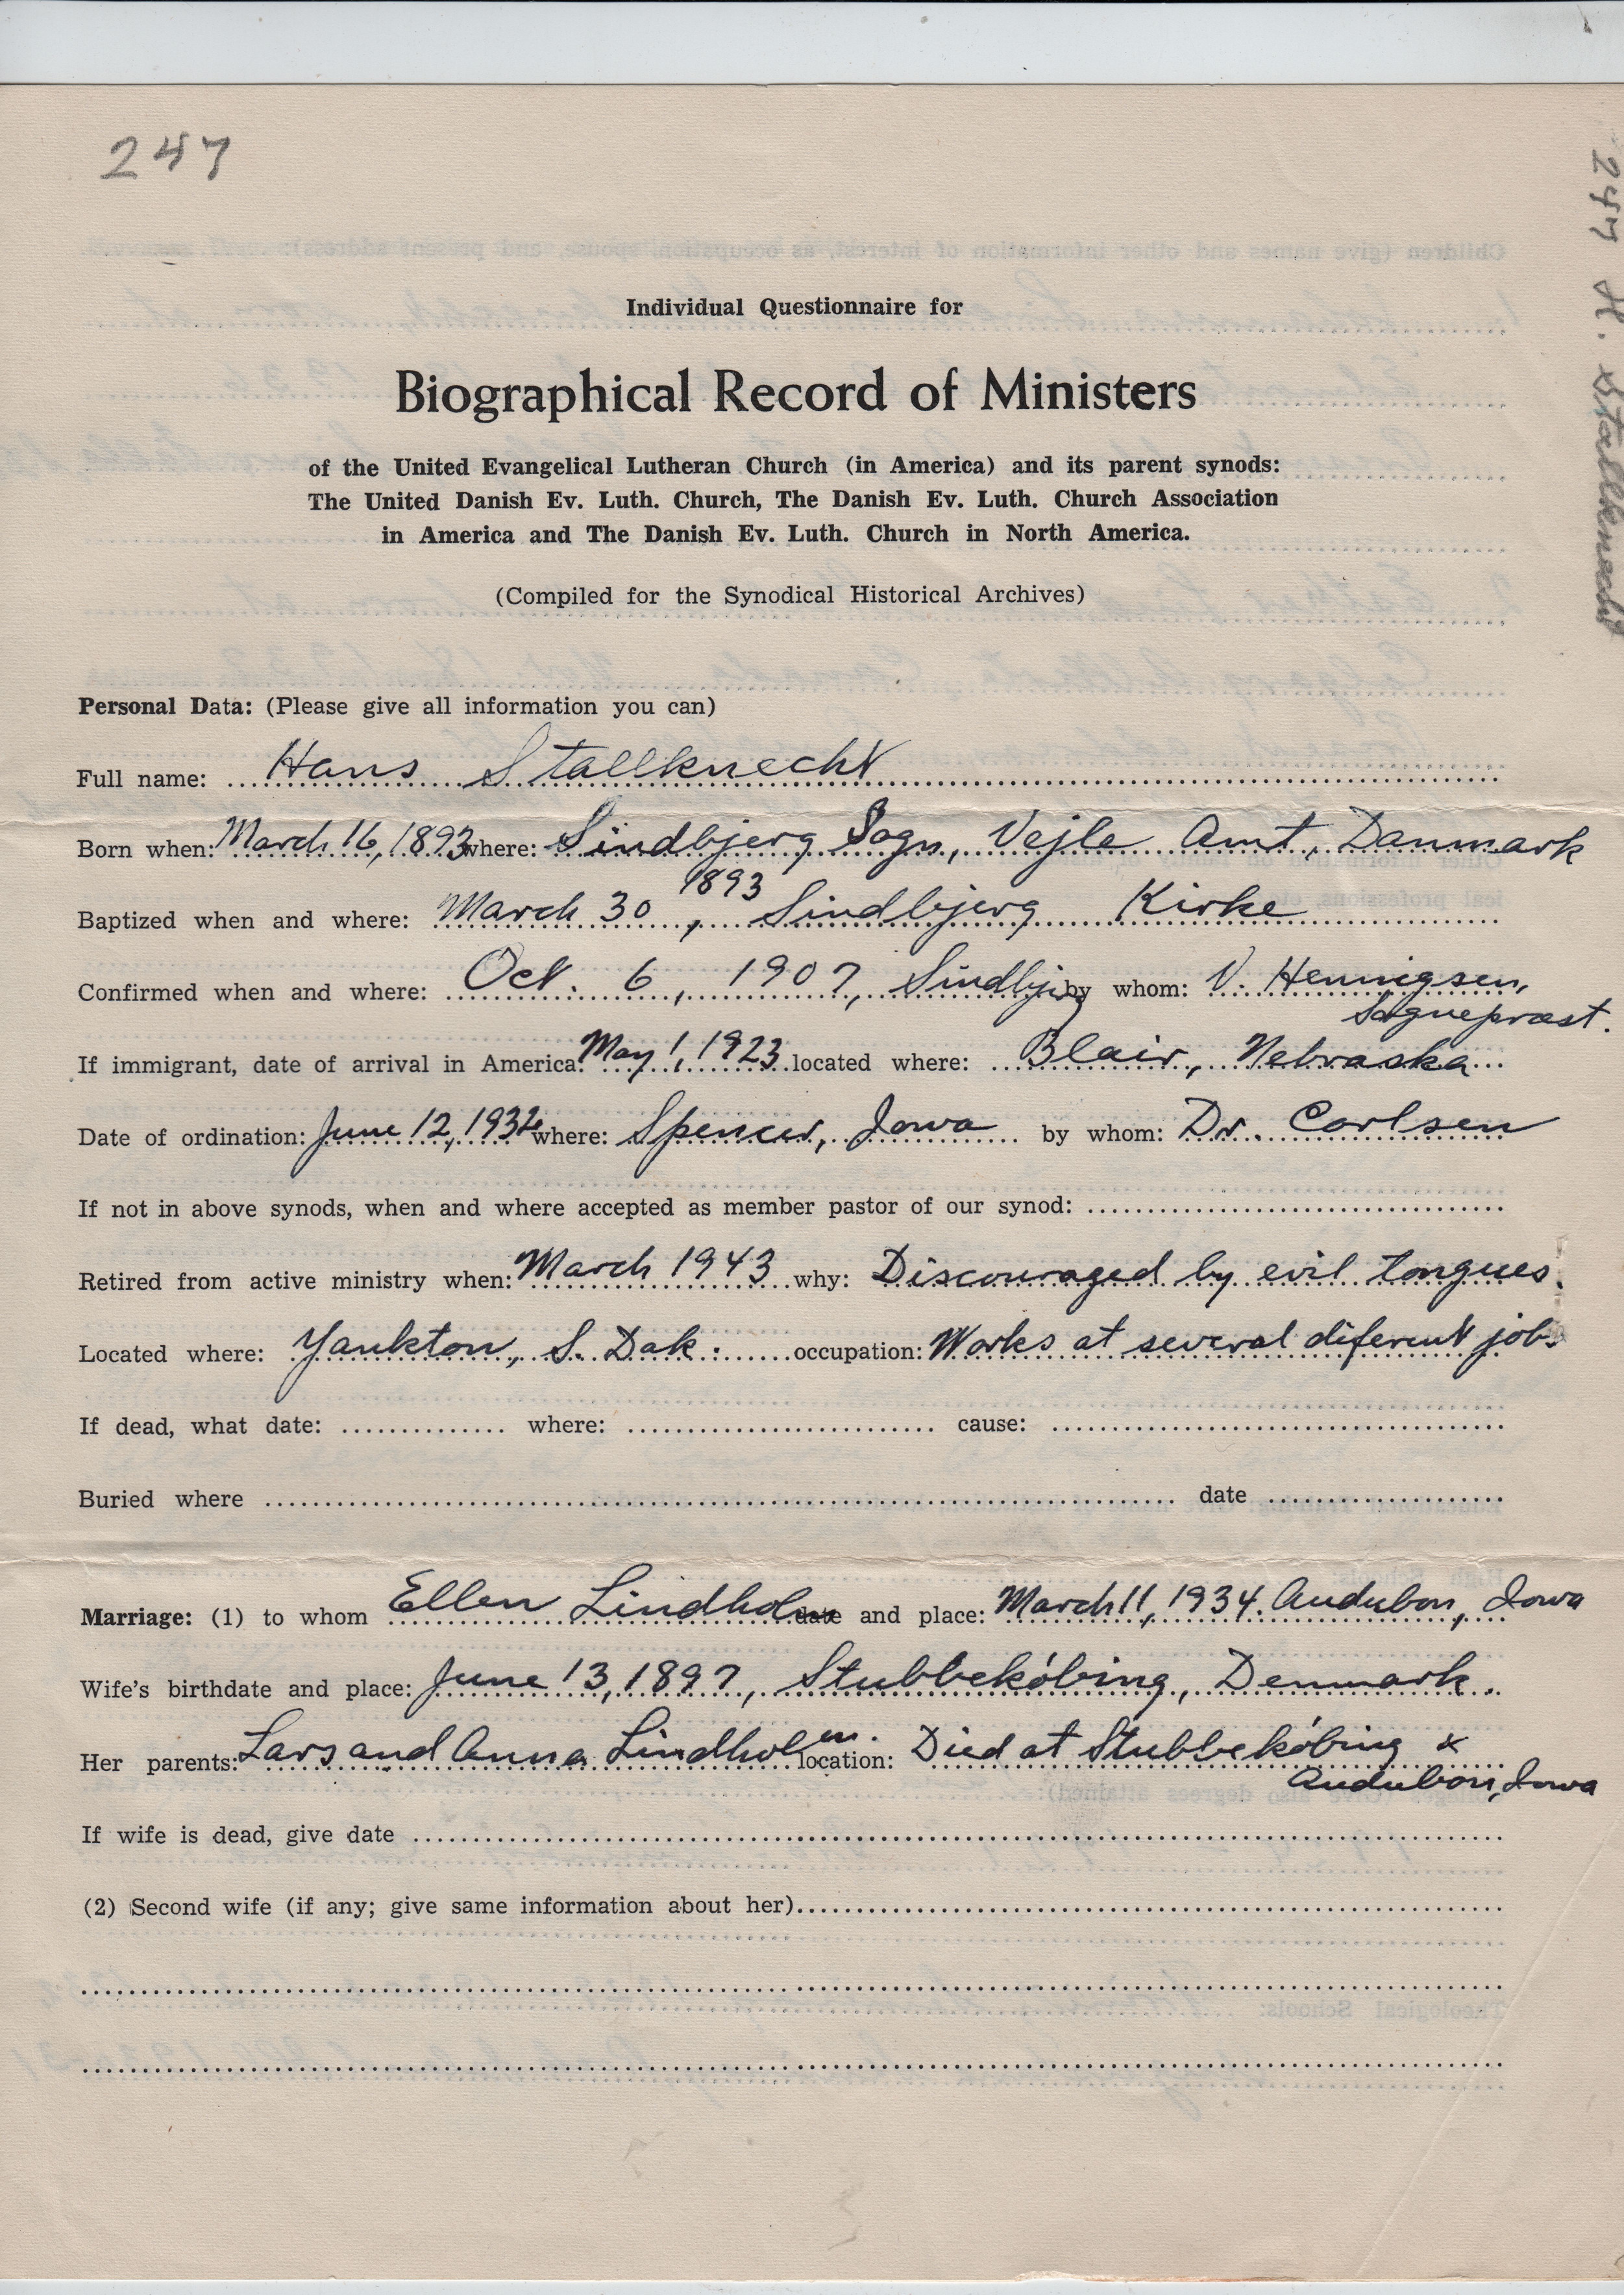 247
247 H. Stallknecht
Individual Questionnaire for
Biographical Record of Ministers
of the United Evangelical Lutheran Church (in America) and its parent synods:
The United Danish Ev. Luth. Church, The Danish Ev. Luth. Church Association
in America and The Danish Ev. Luth. Church in North America.
(Compiled for the Synodical Historical Archives)
Personal Data: (Please give all information you can)
Full name: Hans Stallknecht
Born when: March 16, 1893 where: Sindbjerg Sogn, Vejle Amt, Danmark
Baptized when and where: March 30, 1893 Sindbjerg Kirke
Confirmed when and where: Oct. 6, 1907, Sindbjerg by whom: V. Hennigsen, Sognepræst.
If immigrant, date of arrival in America: May 1, 1923 located where: Blair, Nebraska
Date of ordination: June 12, 1932 where: Spencer, Iowa by whom: Dr. Carlsen
If not in above synods, when and where accepted as member pastor of our synod:
Retired from active ministry when: March 1943 why: Discouraged by evil tongues.
Located where: Yankton, S. Dak. occupation: Works at several diferent jobs
If dead, what date: where: cause:
Buried where date
Marriage: (1) to whom Ellen Lindholm date and place: March 11, 1934. Audubon, Iowa
Wife's birthdate and place: June 13, 1897, Stubbekóbing, Denmark.
Her parents: Lars and Anna Lindholm. location: Died at Stubbekóbing &
Audubon, Iowa
If wife is dead, give date
(2) Second wife (if any; give same information about her)